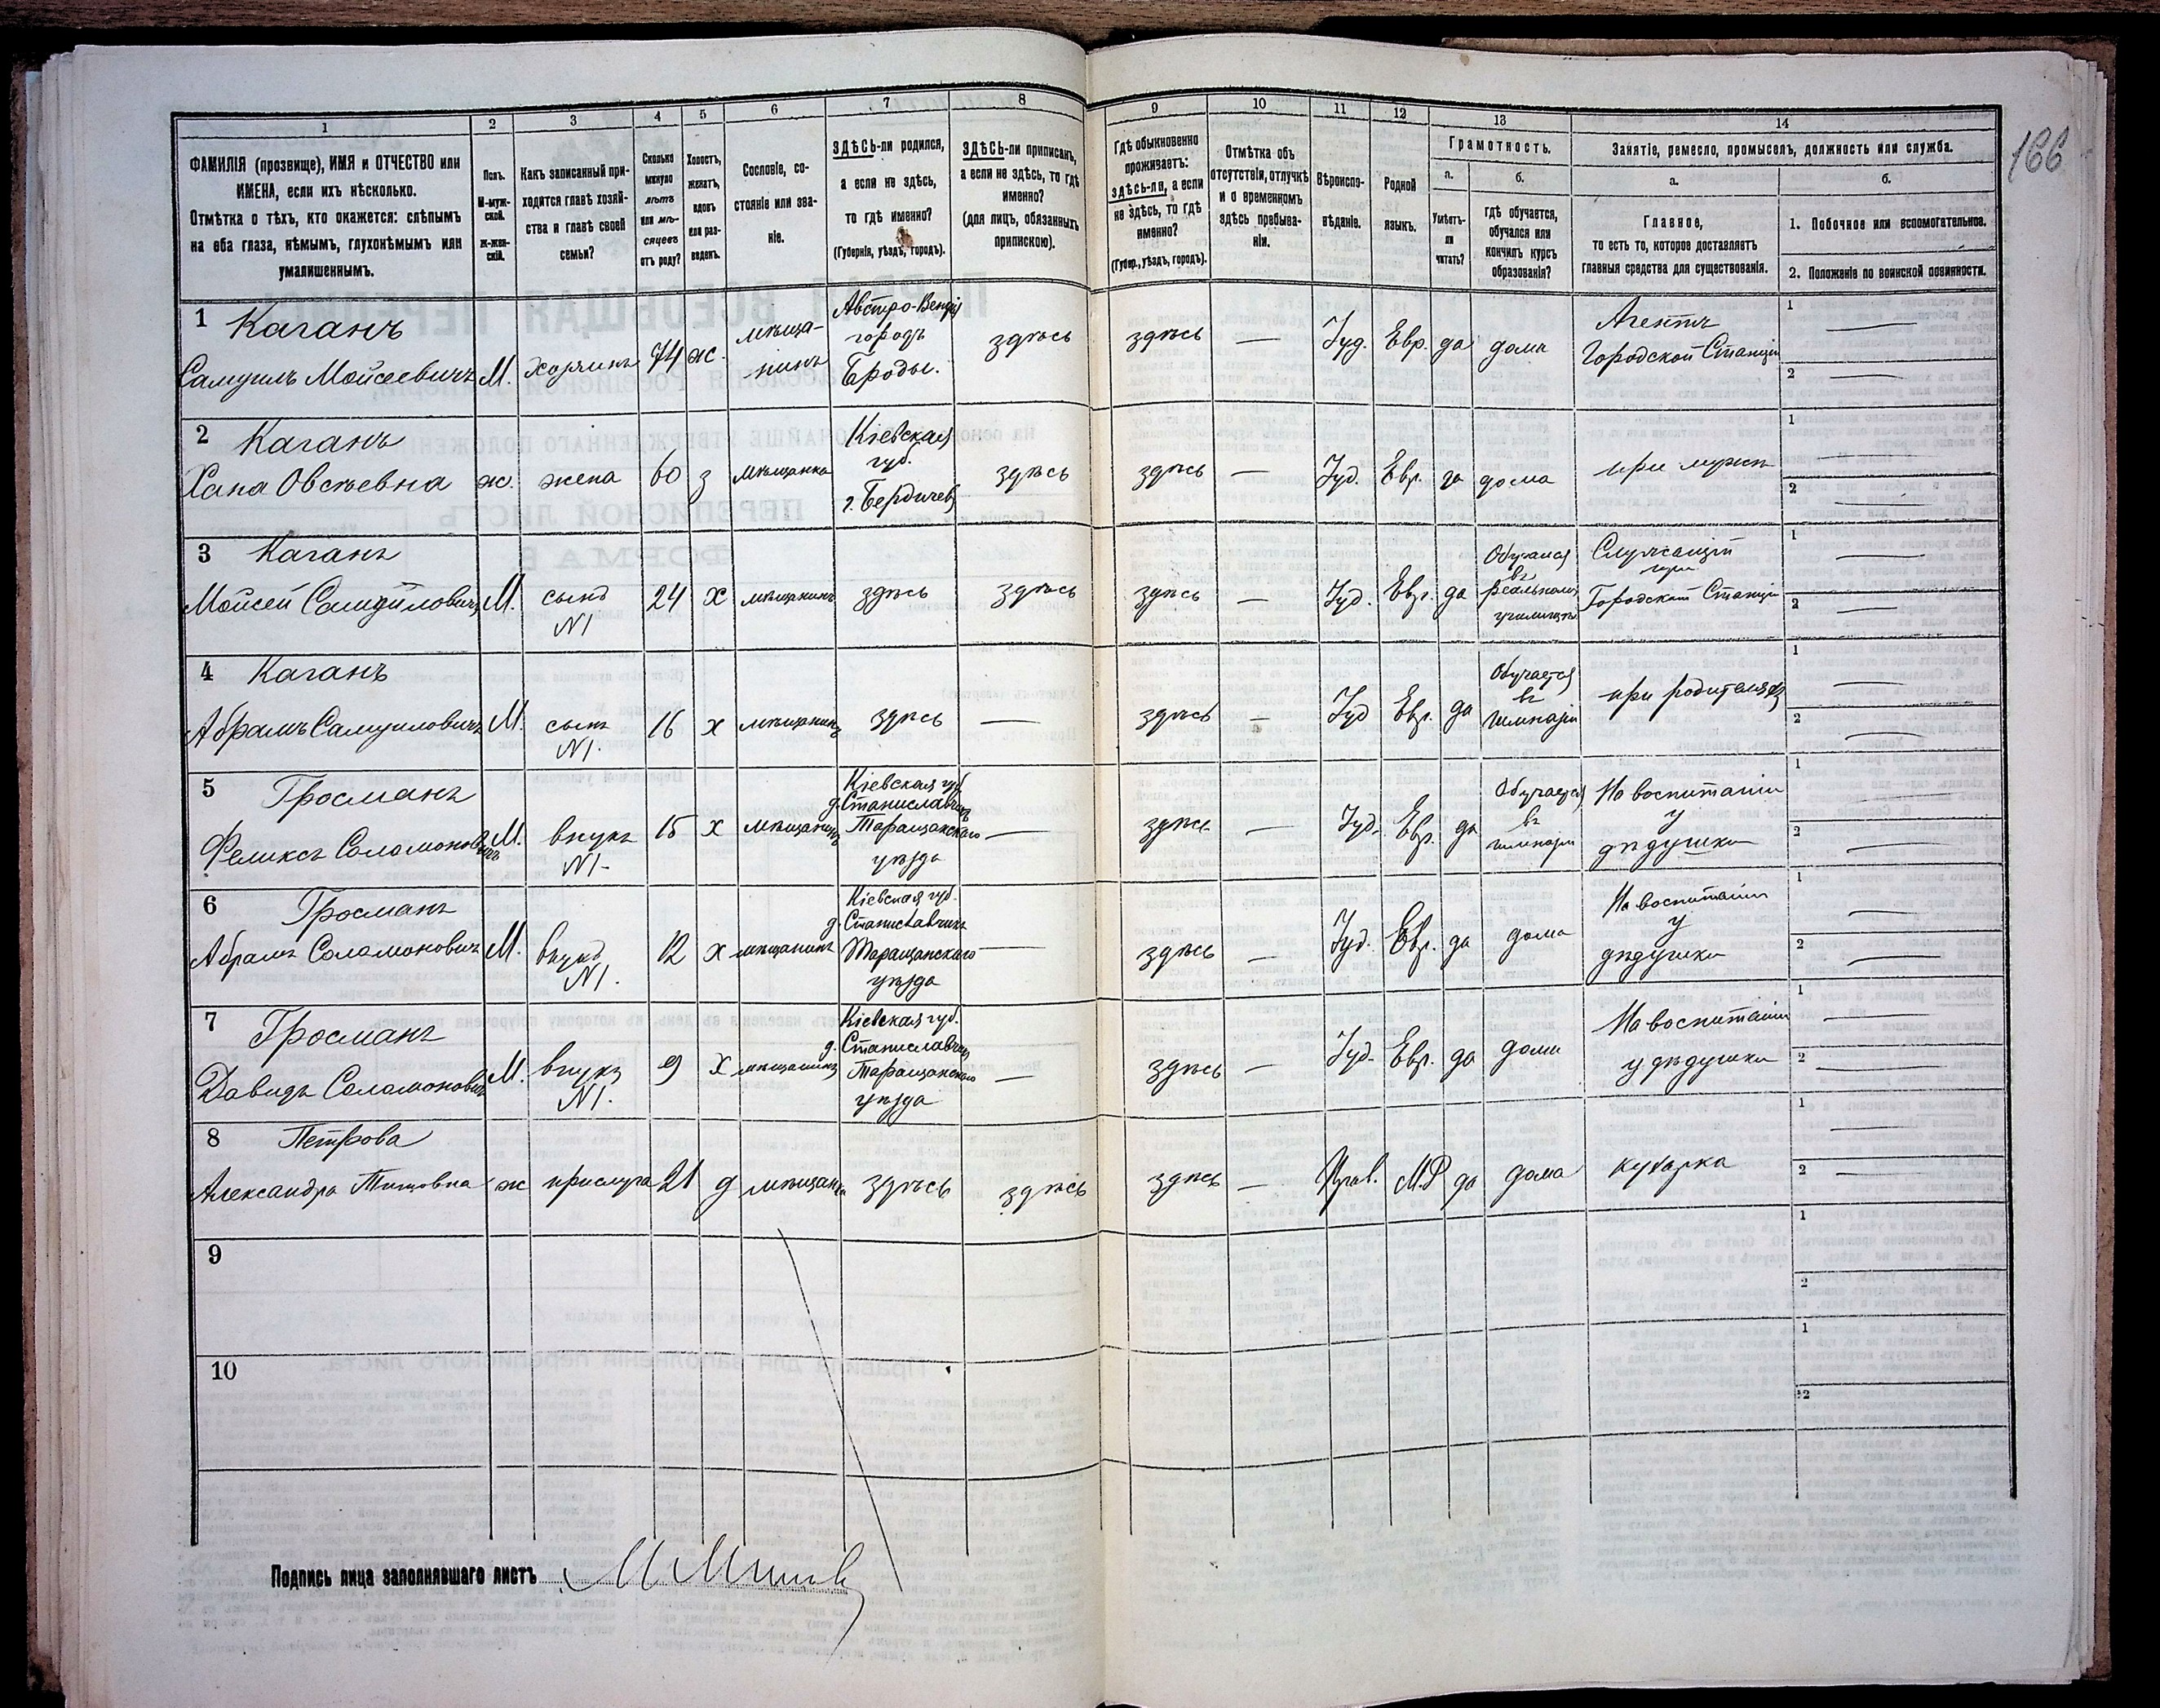 166
1 2 3 4 5 6 7 8 9 10 11 12 13 14
ФАМИЛІЯ (прозвище), ИМЯ и ОТЧЕСТВО или
ИМЕНА, если ихъ нѣсколько.
Отмѣтка о тѣхъ, кто окажется: слѣпымъ
на оба глаза, нѣмымъ, глухонѣмымъ или
умалишеннымъ.
Полъ.
М-муж-
ской.
Ж-жен-
скій.
Какъ записанный при-
ходится главѣ хозяй-
ства и главѣ своей
семьи?
Сколько
минуло
лѣтъ
или мѣ-
сяцевъ
отъ роду?
Холостъ,
женатъ,
вдовъ
или раз-
веденъ.
Сословіе, со-
стояніе или зва-
ніе.
ЗДѢСЬ-ли родился,
а если не здѣсь,
то гдѣ именно?
(Губернія, уѣздъ, городъ).
ЗДѢСЬ-ли приписанъ,
а если не здѣсь, то гдѣ
именно?
(для лицъ, обязанныхъ
припискою).
Гдѣ обыкновенно
проживаетъ:
здѣсь-ли, а если
не здѣсь, то гдѣ
именно?
(Губер., уѣздъ, городъ).
Отмѣтка объ
отсутствіи, отлучкѣ
и о временномъ
здѣсь пребыва-
ніи.
Вѣроиспо-
вѣданіе.
Родной
языкъ.
Грамотность.
а.
Умѣетъ-
ли
читать?
б.
Гдѣ обучается,
обучался или
кончилъ курсъ
образованія?
Занятіе, ремесло, промыселъ, должность или служба.
а.
Главное,
то есть то, которое доставляетъ
главныя средства для существованія.
б.
1. Побочное или вспомогательное.
2. Положеніе по воинской повинности.
1 Каганъ
Самуилъ Мойсеевичъ М. хозяинъ 74 ж. мѣща-
нинъ
Австро-Венгрія
городъ
Броды.
здѣсь здѣсь — Іуд. Евр. да дома
Агентъ
Городской Станціи
1 —
2 —
2 Каганъ
Хана Овсѣевна ж. жена 60 з мѣщанка
Кіевская
губ.
г. Бердичевъ
здѣсь здѣсь — Іуд. Евр. да дома при мужѣ
1 —
2 —
3 Каганъ
Мойсей Самуиловичъ М. сынъ
N1
24 х мѣщанинъ здѣсь здѣсь здѣсь — Іуд. Евр. да
Обучался
въ
реальномъ
училищѣ
Служащій
при
Городской Станціи
1 —
2 —
4 Каганъ
Абрамъ Самуиловичъ М. сынъ
N1.
16 х мѣщанинъ здѣсь — здѣсь — Іуд Евр. да
Обучается
въ
гимназіи
при родителяхъ
1 —
2 —
5 Гросманъ
Феликсъ Соломоновичъ М. внукъ
N1-
15 х мѣщанинъ
Кіевская губ.
д. Станиславчикъ
Таращанскаго
уѣзда
— здѣсь — Іуд. Евр. да
Обучается
въ
гимназіи
На воспитаніи
у
дѣдушки
1 —
2 —
6 Гросманъ
Абрамъ Соломоновичъ М. внукъ
N1.
12 х мѣщанинъ
Кіевская губ.
д. Станиславчикъ
Таращанскаго
уѣзда
— здѣсь — Іуд. Евр. да дома
На воспитаніи
у
дѣдушки
1 —
2 —
7 Гросманъ
Давидъ Соломоновичъ М. внукъ
N1.
9 х мѣщанинъ
Кіевская губ.
д. Станиславчикъ
Таращанскаго
уѣзда
— здѣсь — Іуд. Евр. да дома
На воспитаніи
у дѣдушки
1 —
2 —
8 Петрова
Александра Титовна ж прислуга 21 д мѣщанка здѣсь здѣсь здѣсь — Прав. М.Р да дома кухарка
1 —
2 —
9
1
2
10
1
2
Подпись лица заполнявшаго листъ